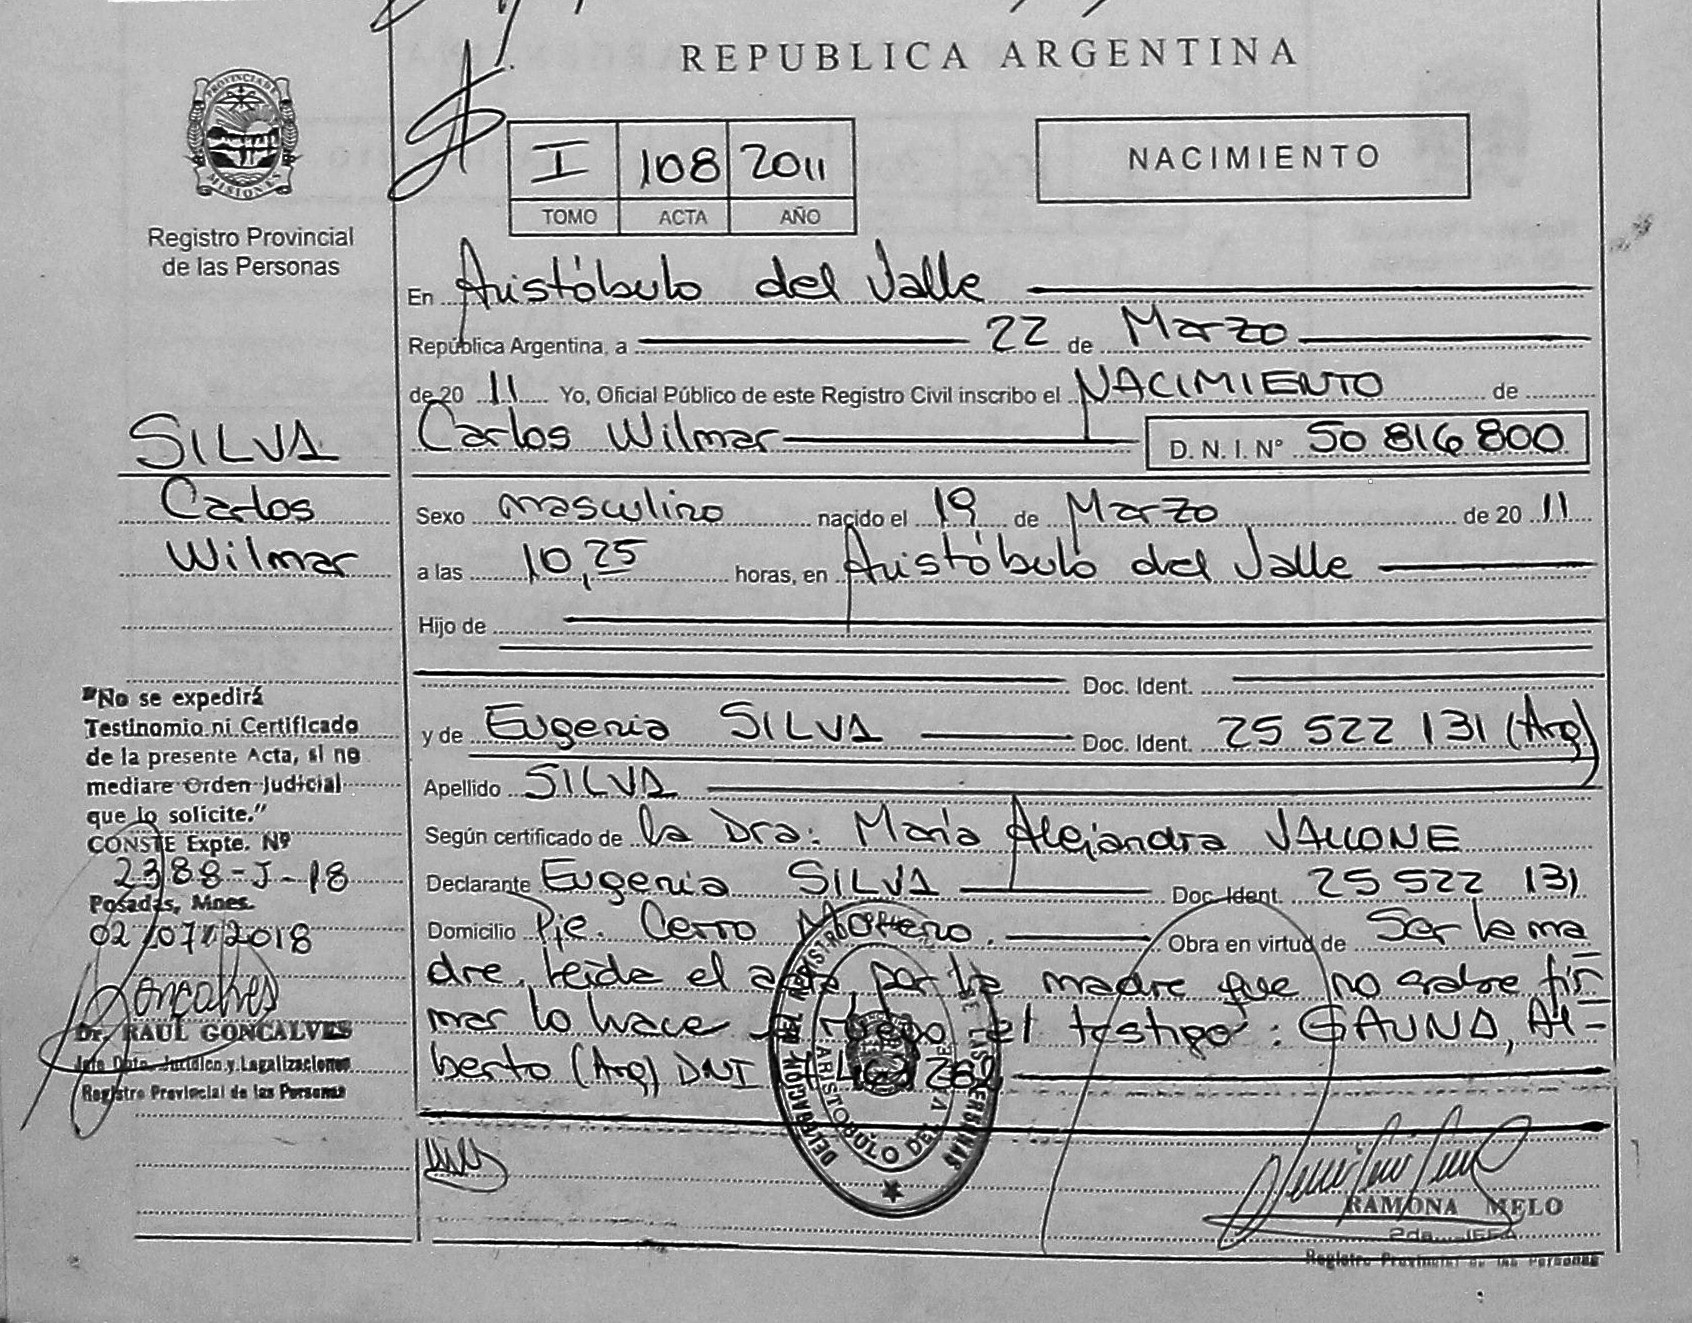 REPUBLICA ARGENTINA
PROVINCIA DE
MISIONES
Registro Provincial
de las Personas
I 108 2011
TOMO ACTA AÑO
NACIMIENTO
En Aristóbulo del Valle
República Argentina, a 22 de Marzo
de 20 11 Yo, Oficial Público de este Registro Civil inscribo el NACIMIENTO de
Carlos Wilmar D. N. I. N° 50 816 800
Sexo masculino nacido el 19 de Marzo de 20 11
a las 10,25 horas, en Aristóbulo del Valle
Hijo de
Doc. Ident.
y de Eugenia SILVA Doc. Ident. 25 522 131 (Arg)
Apellido SILVA
Según certificado de la Dra: María Alejandra VALLONE
Declarante Eugenia SILVA Doc. Ident. 25 522 131
Domicilio Pje. Cerro Moreno. Obra en virtud de Ser la ma
dre. Leida el acta, por la madre que no sabe fir
mar lo hace a ruego el testigo: GAUNA, Al-
berto (Arg) DNI
SILVA
Carlos
Wilmar
"No se expedirá
Testinomio ni Certificado
de la presente Acta, si no
mediare Orden Judicial
que lo solicite."
CONSTE Expte. Nº
2388-J-18
Posadas, Mnes.
02/07/2018
Goncalves
Dr. RAUL GONCALVES
Jefe Dpto. Jurídico y Legalizaciones
Registro Provincial de las Personas
DELEGACION DEL REGISTRO DE LAS PERSONAS
ARISTOBULO DEL
RAMONA MELO
2da. JEFA
Registro Provincial de las Personas